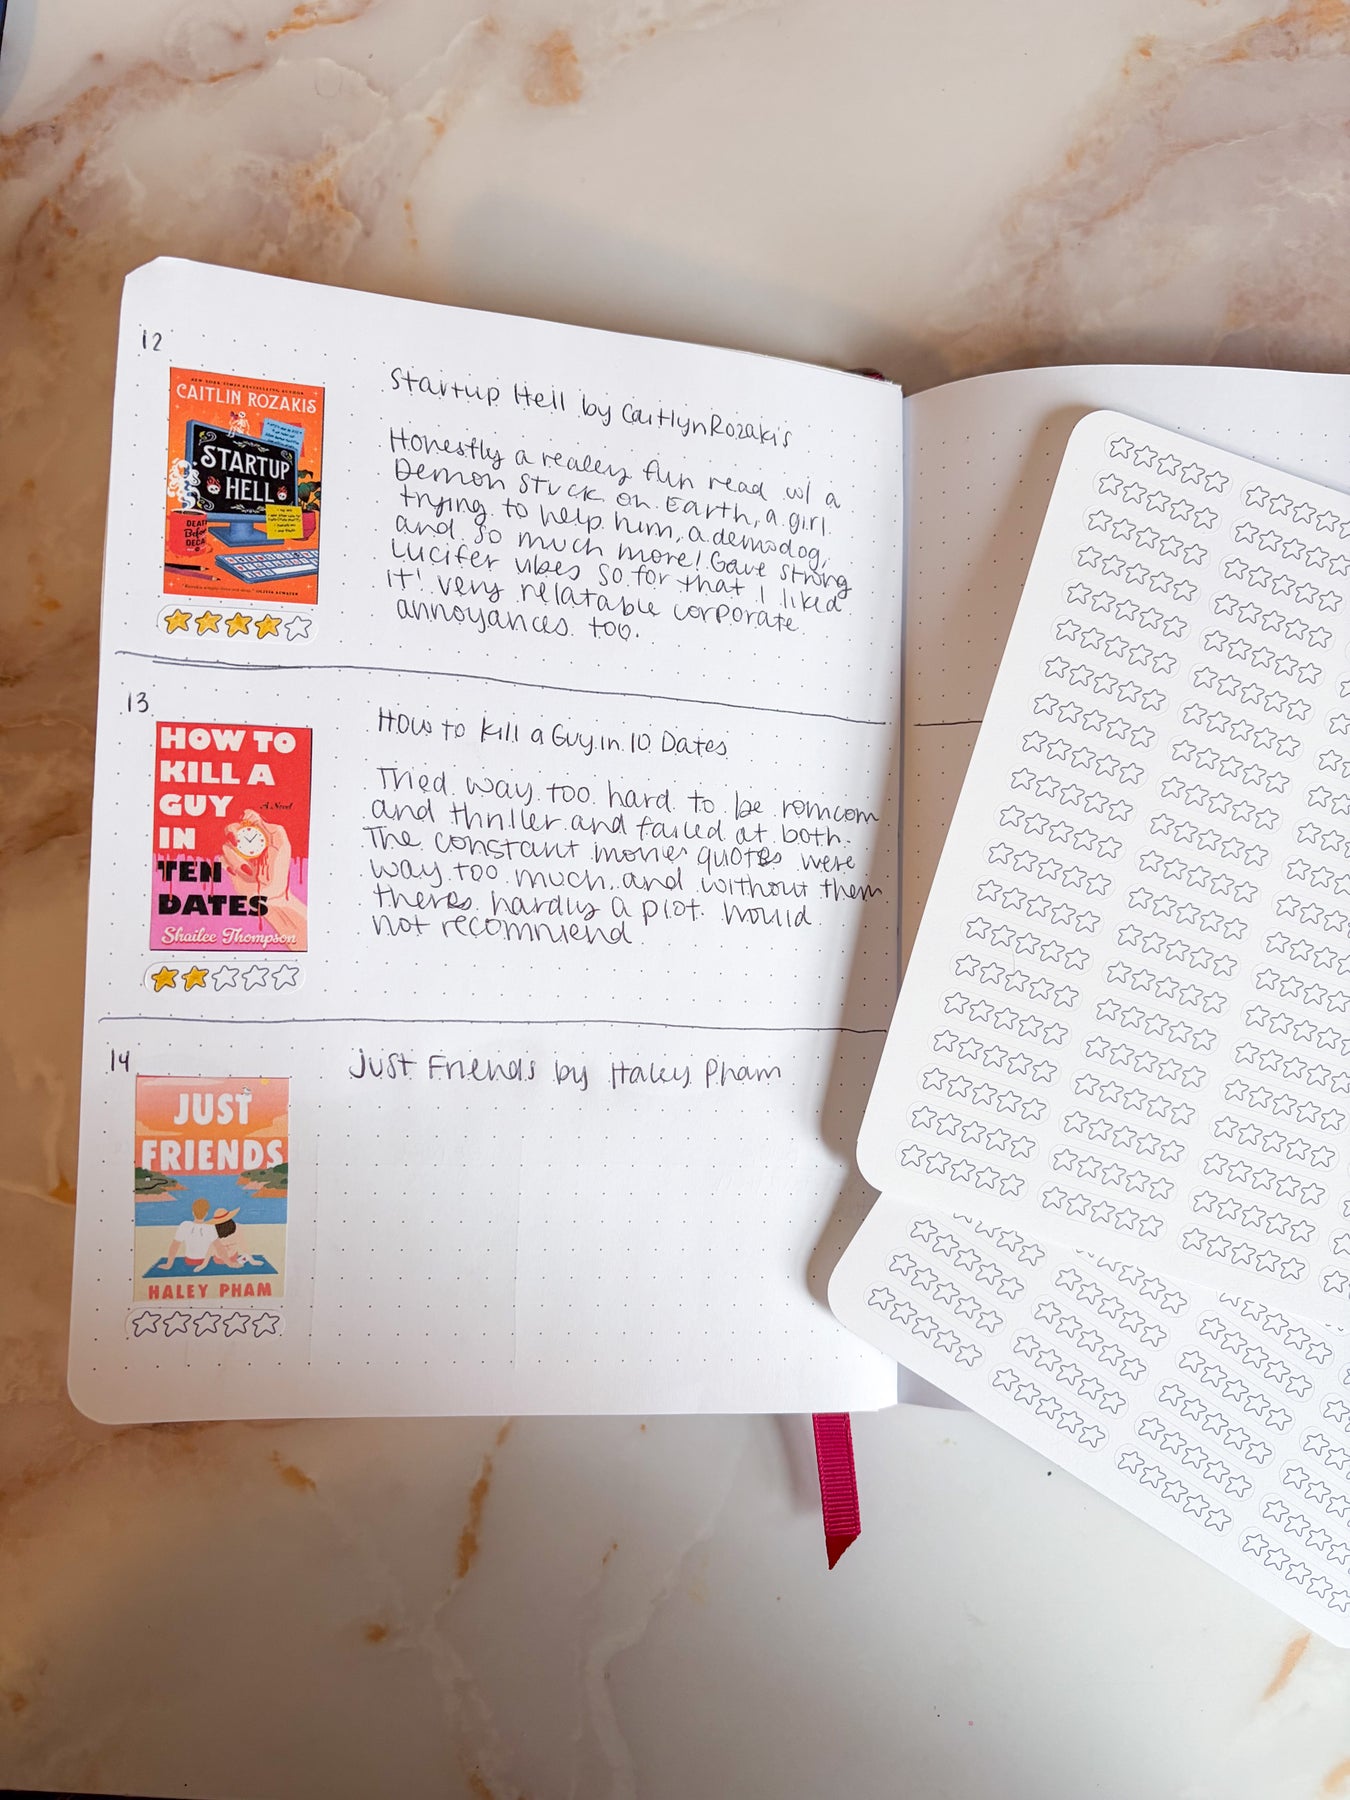 12
NEW YORK TIMES BESTSELLING AUTHOR
CAITLIN ROZAKIS
STARTUP
HELL
DEATH
Before
DECAF
Startup Hell by Caitlyn Rozakis
Honestly a really fun read w/ a
Demon stuck on Earth, a girl
trying to help him, a demodog,
and so much more! Gave strong
Lucifer vibes so for that I liked
it! very relatable corporate
annoyances too.
13
HOW TO
KILL A
GUY
A Novel
IN
TEN
DATES
Shailee Thompson
How to Kill a Guy in 10 Dates
Tried way too hard to be romcom
and thriller and failed at both.
The constant movie quotes were
way too much and without them
theres hardly a plot. Would
not recommend
14
JUST
FRIENDS
HALEY PHAM
Just Friends by Haley Pham